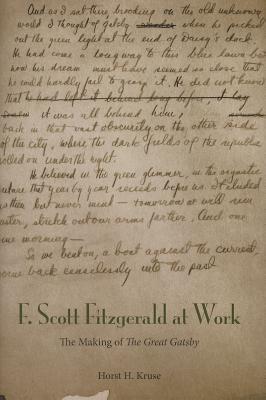 And as I sat there, brooding on the old unknown
world I thought of Gatsby when he picked
out the green light at the end of Daisy's dock.
He had come a long way to this blue lawn
now his dream must have seemed so close that
he could hardly fail to grasp it. He did not know
that he had left it behind long before,
it was all behind him,
back in that vast obscurity on the other side
of the city, where the dark fields of the republic
rolled on under the night.
He believed in the green glimmer, in the orgastic
future that year by year recedes before us. It eluded
us then but never mind — tomorrow we will run
faster, stretch out our arms farther. And one
fine morning—
So we beat on, a boat against the current,
borne back ceaselessly into the past
F. Scott Fitzgerald at Work
The Making of The Great Gatsby
Horst H. Kruse